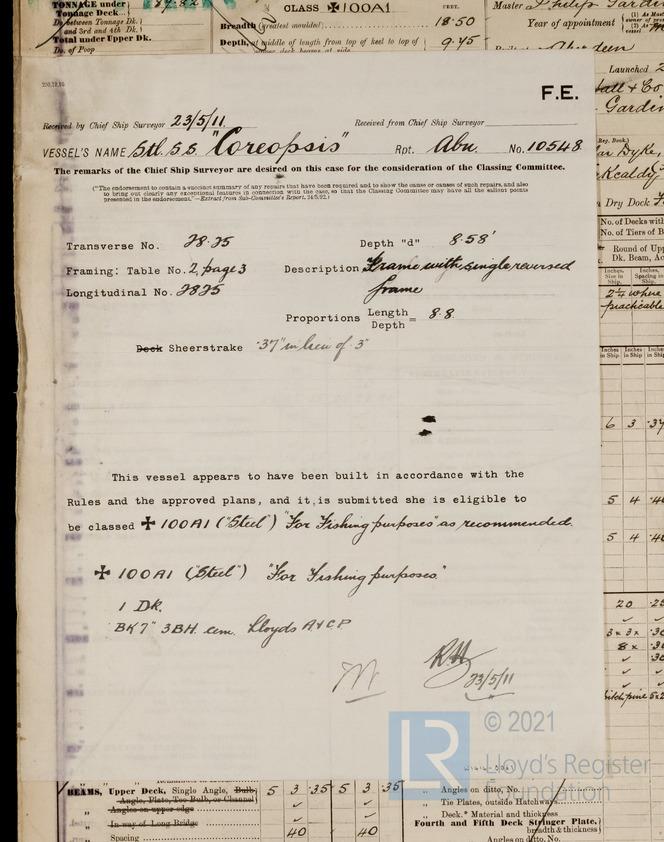 TONNAGE under
Tonnage Deck...
Do between Tonnage Dk.
and 3rd and 4th Dk.
Total under Upper Dk.
Do. of Poop
CLASS ✠100A1
FEET.
Breadth (greatest moulded) 18·50
Depth, at middle of length from top of keel to top of 9·45
Master Philip Gardin
Year of appointment
Aberdeen
Launched
F.E.
Received by Chief Ship Surveyor 23/5/11 Received from Chief Ship Surveyor
VESSEL'S NAME Stl. S.S. "Coreopsis" Rpt. Abn. No. 10548
The remarks of the Chief Ship Surveyor are desired on this case for the consideration of the Classing Committee.
("The endorsement to contain a succinct summary of any repairs that have been required and to show the cause or causes of such repairs, and also
to bring out clearly any exceptional features in connection with the case, so that the Classing Committee may have all the salient points
presented in the endorsement."—Extract from Sub-Committee's Report, 14/5/92.)
Transverse No. 28·25 Depth "d" 8·58'
Framing: Table No. 2, page 3 Description Frame with single reversed
Longitudinal No. 2825 frame
Proportions Length
Depth = 8.8.
Deck Sheerstrake ·37" in lieu of ·3"
This vessel appears to have been built in accordance with the
Rules and the approved plans, and it is submitted she is eligible to
be classed ✠ 100A1 ("Steel") "For Fishing purposes" as recommended.
✠ 100A1 ("Steel") "For Fishing purposes."
1 Dk.
BK 7" 3BH. cem. Lloyds A&CP
23/5/11
© 2021
LR
Lloyd's Register
Foundation
Reg. Book.)
Dry Dock
No. of Decks with
No. of Tiers of B
Round of Upp
Dk. Beam, Ac
Inches. Inches.
Size in Spacing in
Ship. Ship.
2¼ where
practicable
Inches Inches
in Ship in Ship
6 3 ·37
5 4
5 4
20 ·25
3 x 3 x ·30
8 x ·30
BEAMS, Upper Deck, Single Angle, Bulb 5 3 ·35 5 3 ·35
Angle, Plate, Tee Bulb, or Channel
" Angles on upper edge
" In way of Long Bridge
" Spacing 40 40
" Angles on ditto, No.
" Tie Plates, outside Hatchways
" Deck.* Material and thickness
Fourth and Fifth Deck Stringer Plate,
breadth & thickness
Angles on ditto, No.